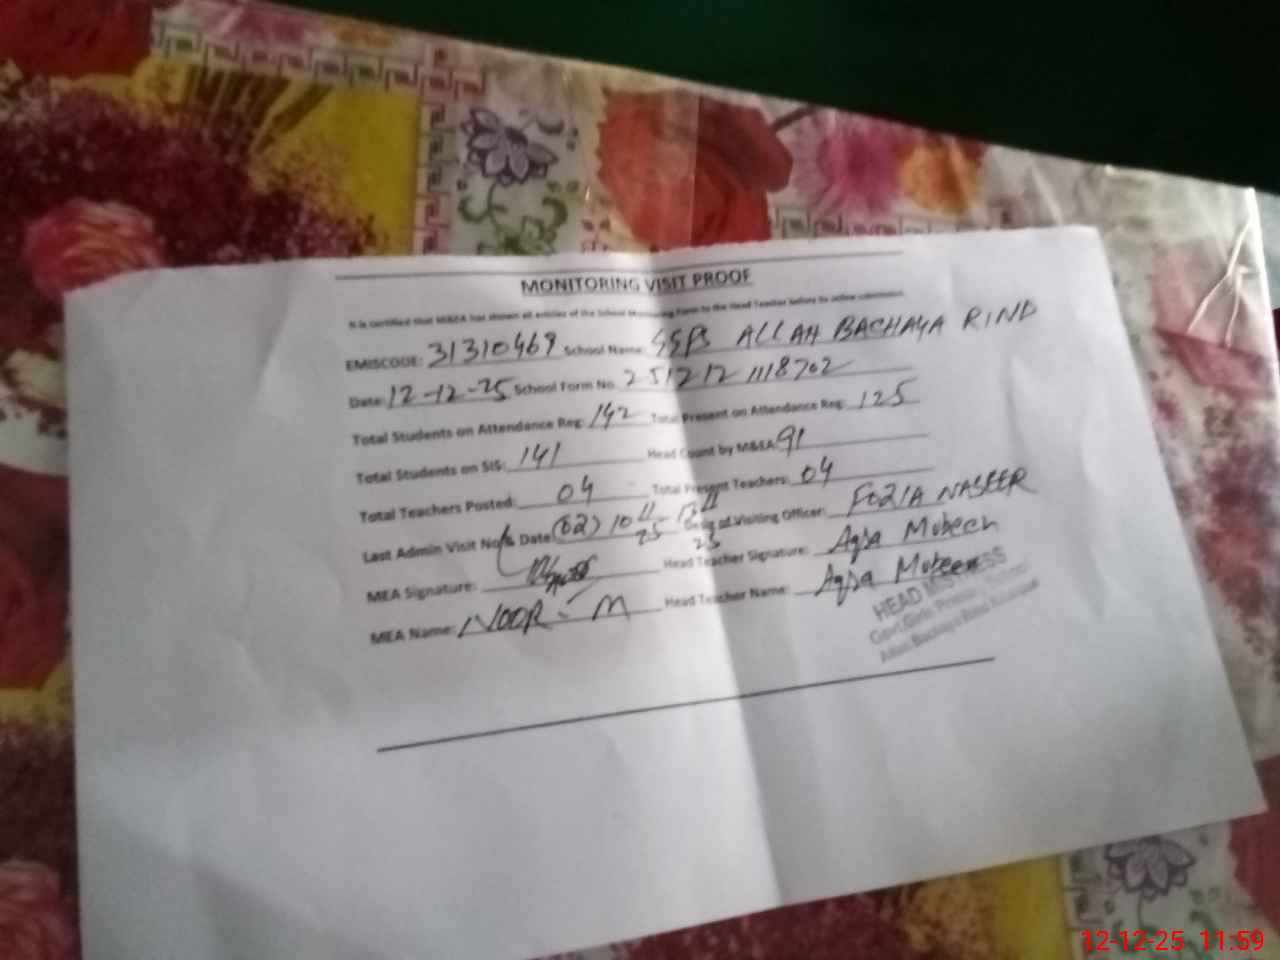 MONITORING VISIT PROOF
It is certified that M&EA has shown all entries of the School Monitoring Form to the Head Teacher before its online submission.
EMISCODE: 31310469 School Name: GGPS ALLAH BACHAYA RIND
Date: 12-12-25 School Form No. 2512121118702
Total Students on Attendance Reg: 142 Total Present on Attendance Reg: 125
Total Students on SIS: 141 Head Count by M&EA: 91
Total Teachers Posted: 04 Total Present Teachers: 04
Last Admin Visit No. & Date (02) 10 11 25 - 13 11 25 Desig of Visiting Officer: FOZIA NASEER
MEA Signature: Head Teacher Signature: Aqsa Mubeen
MEA Name: NOOR - M Head Teacher Name: Aqsa Mubeen
HEAD MISTRESS
Govt. Girls Primary School
Allah Bachaya Rind
12-12-25 11:59